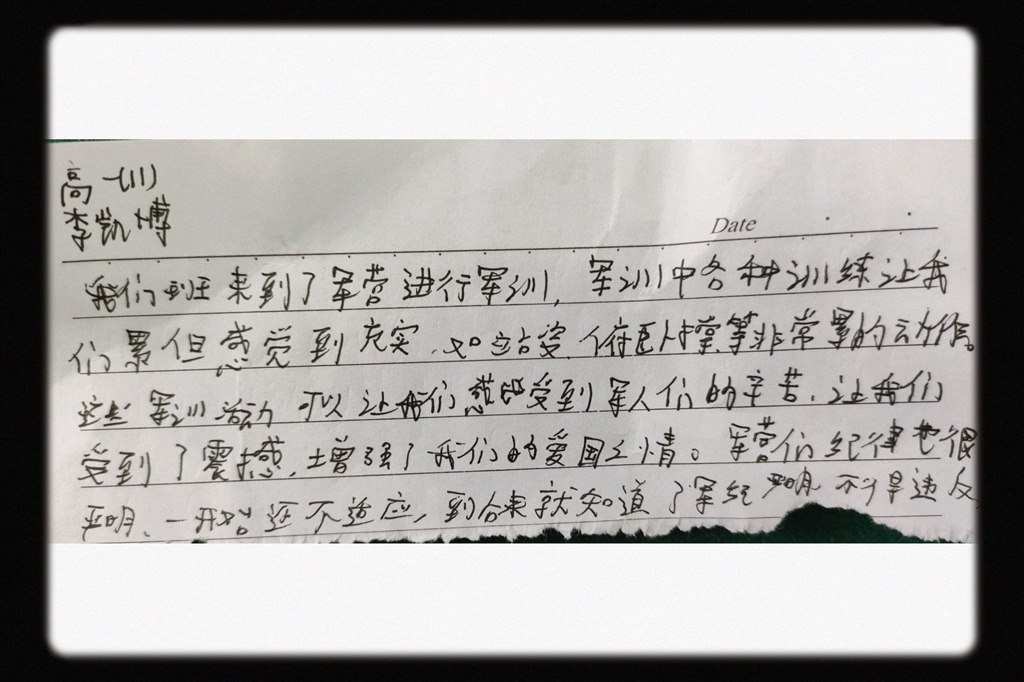 高一(11)
李凯博
Date
我们班来到了军营进行军训，军训中各种训练让我
们累但感觉到充实，如站姿、俯卧撑等非常累的动作。
这些军训活动可以让我们感受到军人们的辛苦，让我们
受到了震撼，增强了我们的爱国之情。军营们纪律也很
严明、一开始还不适应，到后来就知道了军纪严明不得违反